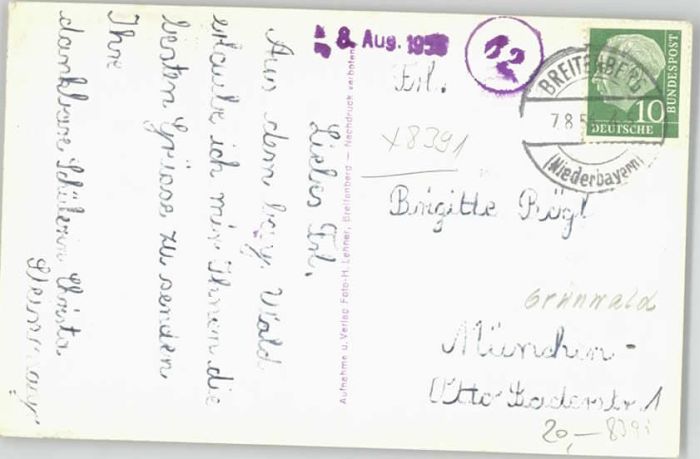 Liebes Frl.
Aus dem bay. Wald
erlaube ich mir Ihnen die
besten Grüsse zu senden
Ihre
dankbare Schülerin Christa
Aufnahme u. Verlag Foto-H. Lehner, Breitenberg — Nachdruck verboten
8. Aug. 195
12
BREITENBERG
7.8.5
(Niederbayern)
10
DEUTSCHE
BUNDESPOST
Frl.
x8391
Brigitte Rögl
Grünwald
München -
Otto str. 1
20,— 8391